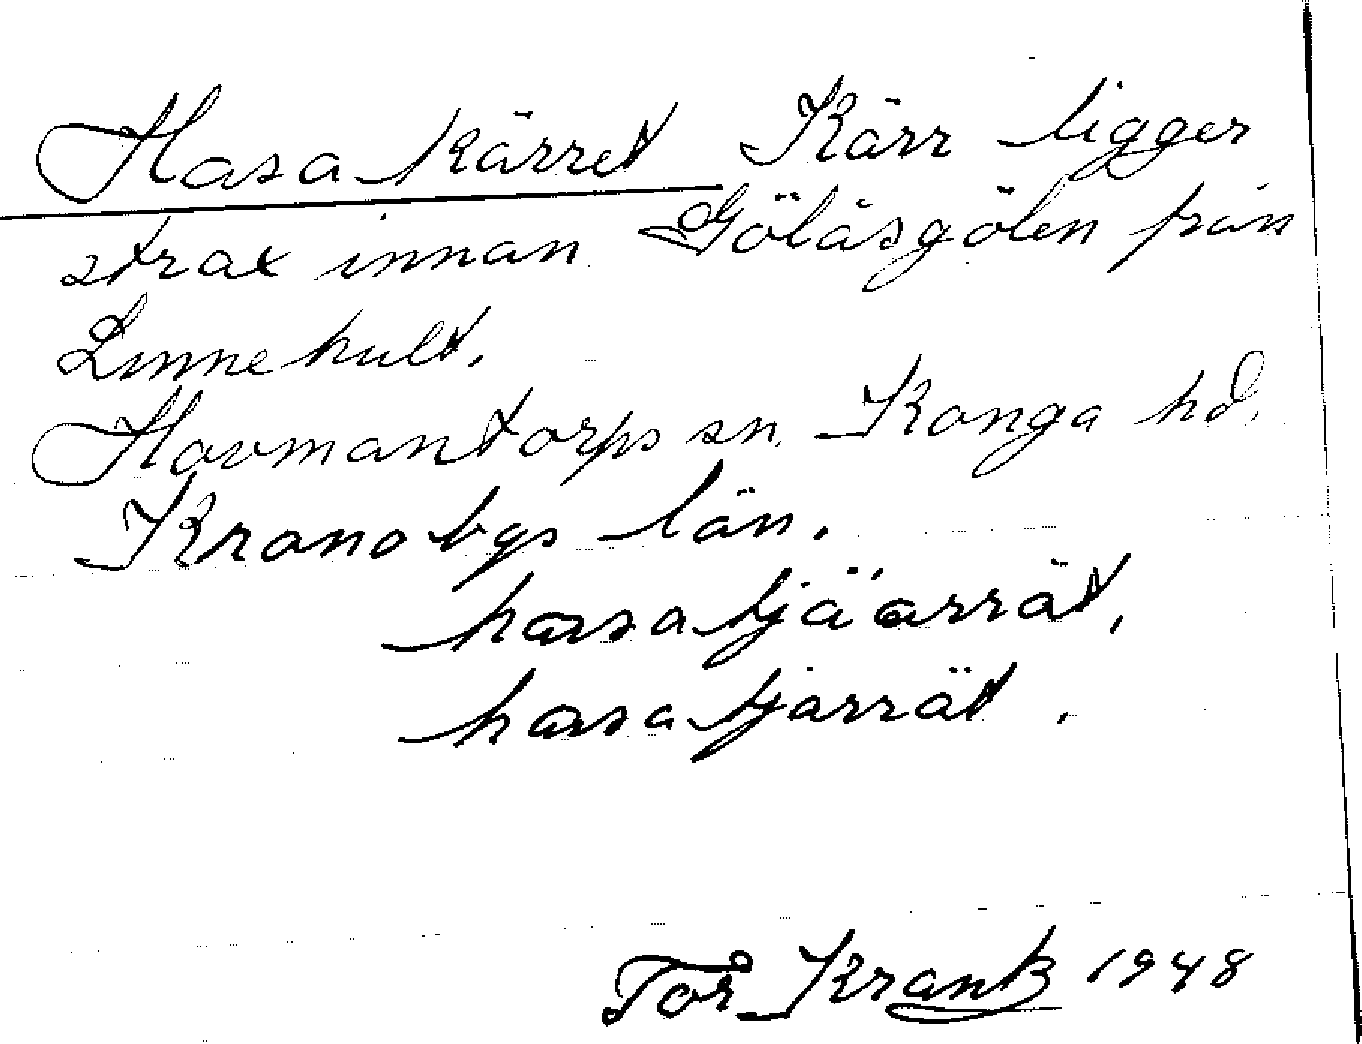 Hasakärret Kärr ligger
strax innan Gölåsgölen från
Linnehult.
Hovmantorps sn. Konga hd.
Kronobgs län.
hasatjäarrät,
hasatjarrät.
Tor Krank 1948